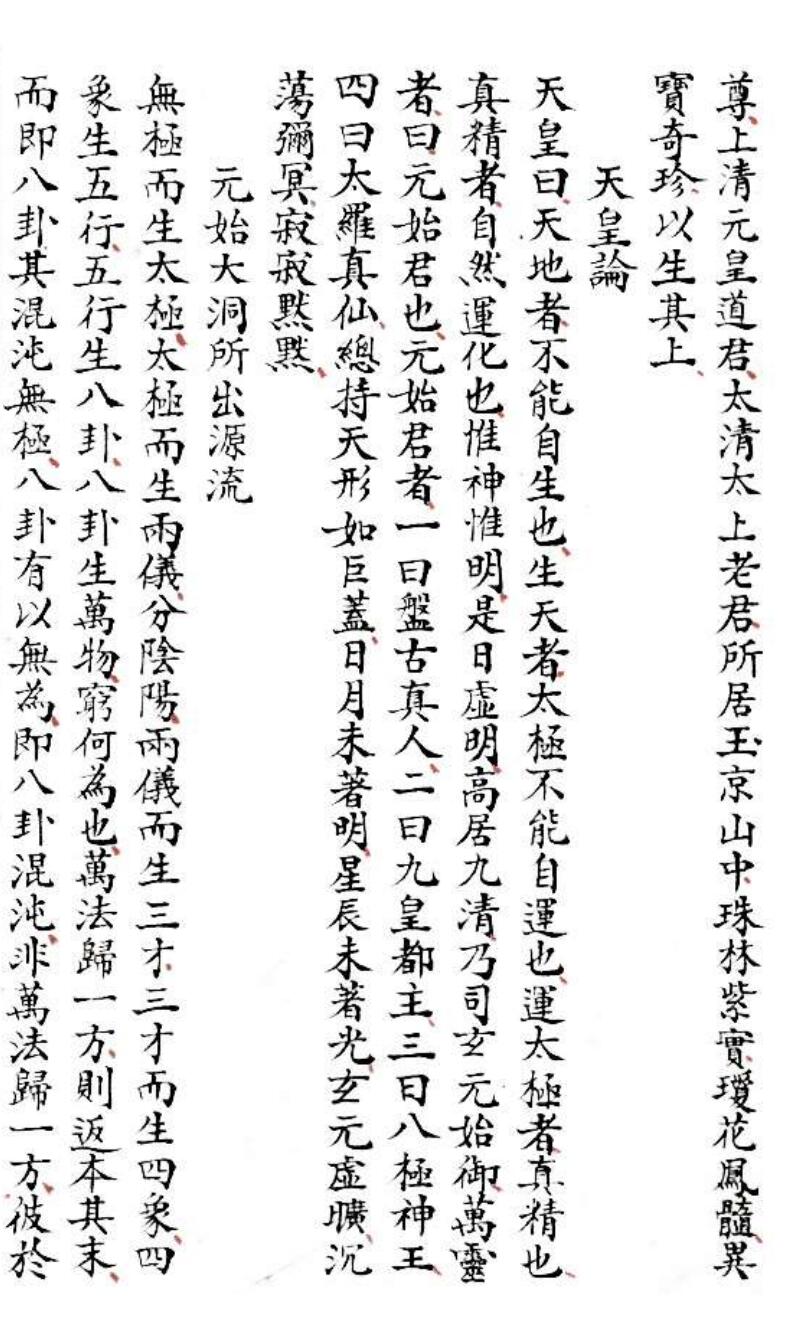 尊上清元皇道君太清太上老君所居玉京山中珠林紫實瓊花鳳髓異
寶奇珍以生其上
天皇論
天皇曰天地者不能自生也生天者太極不能自運也運太極者真精也
真精者自然運化也惟神惟明是日虛明高居九清乃司玄元始御萬靈
者曰元始君也元始君者一曰盤古真人二曰九皇都主三曰八極神王
四曰太羅真仙總持天形如巨蓋日月未著明星辰未著光玄元虛曠沉
蕩彌冥寂寂默默
元始大洞所出源流
無極而生太極太極而生兩儀分陰陽兩儀而生三才三才而生四象四
象生五行五行生八卦八卦生萬物窮何為也萬法歸一方則返本其末
而即八卦其混沌無極八卦有以無為即八卦混沌非萬法歸一方彼於